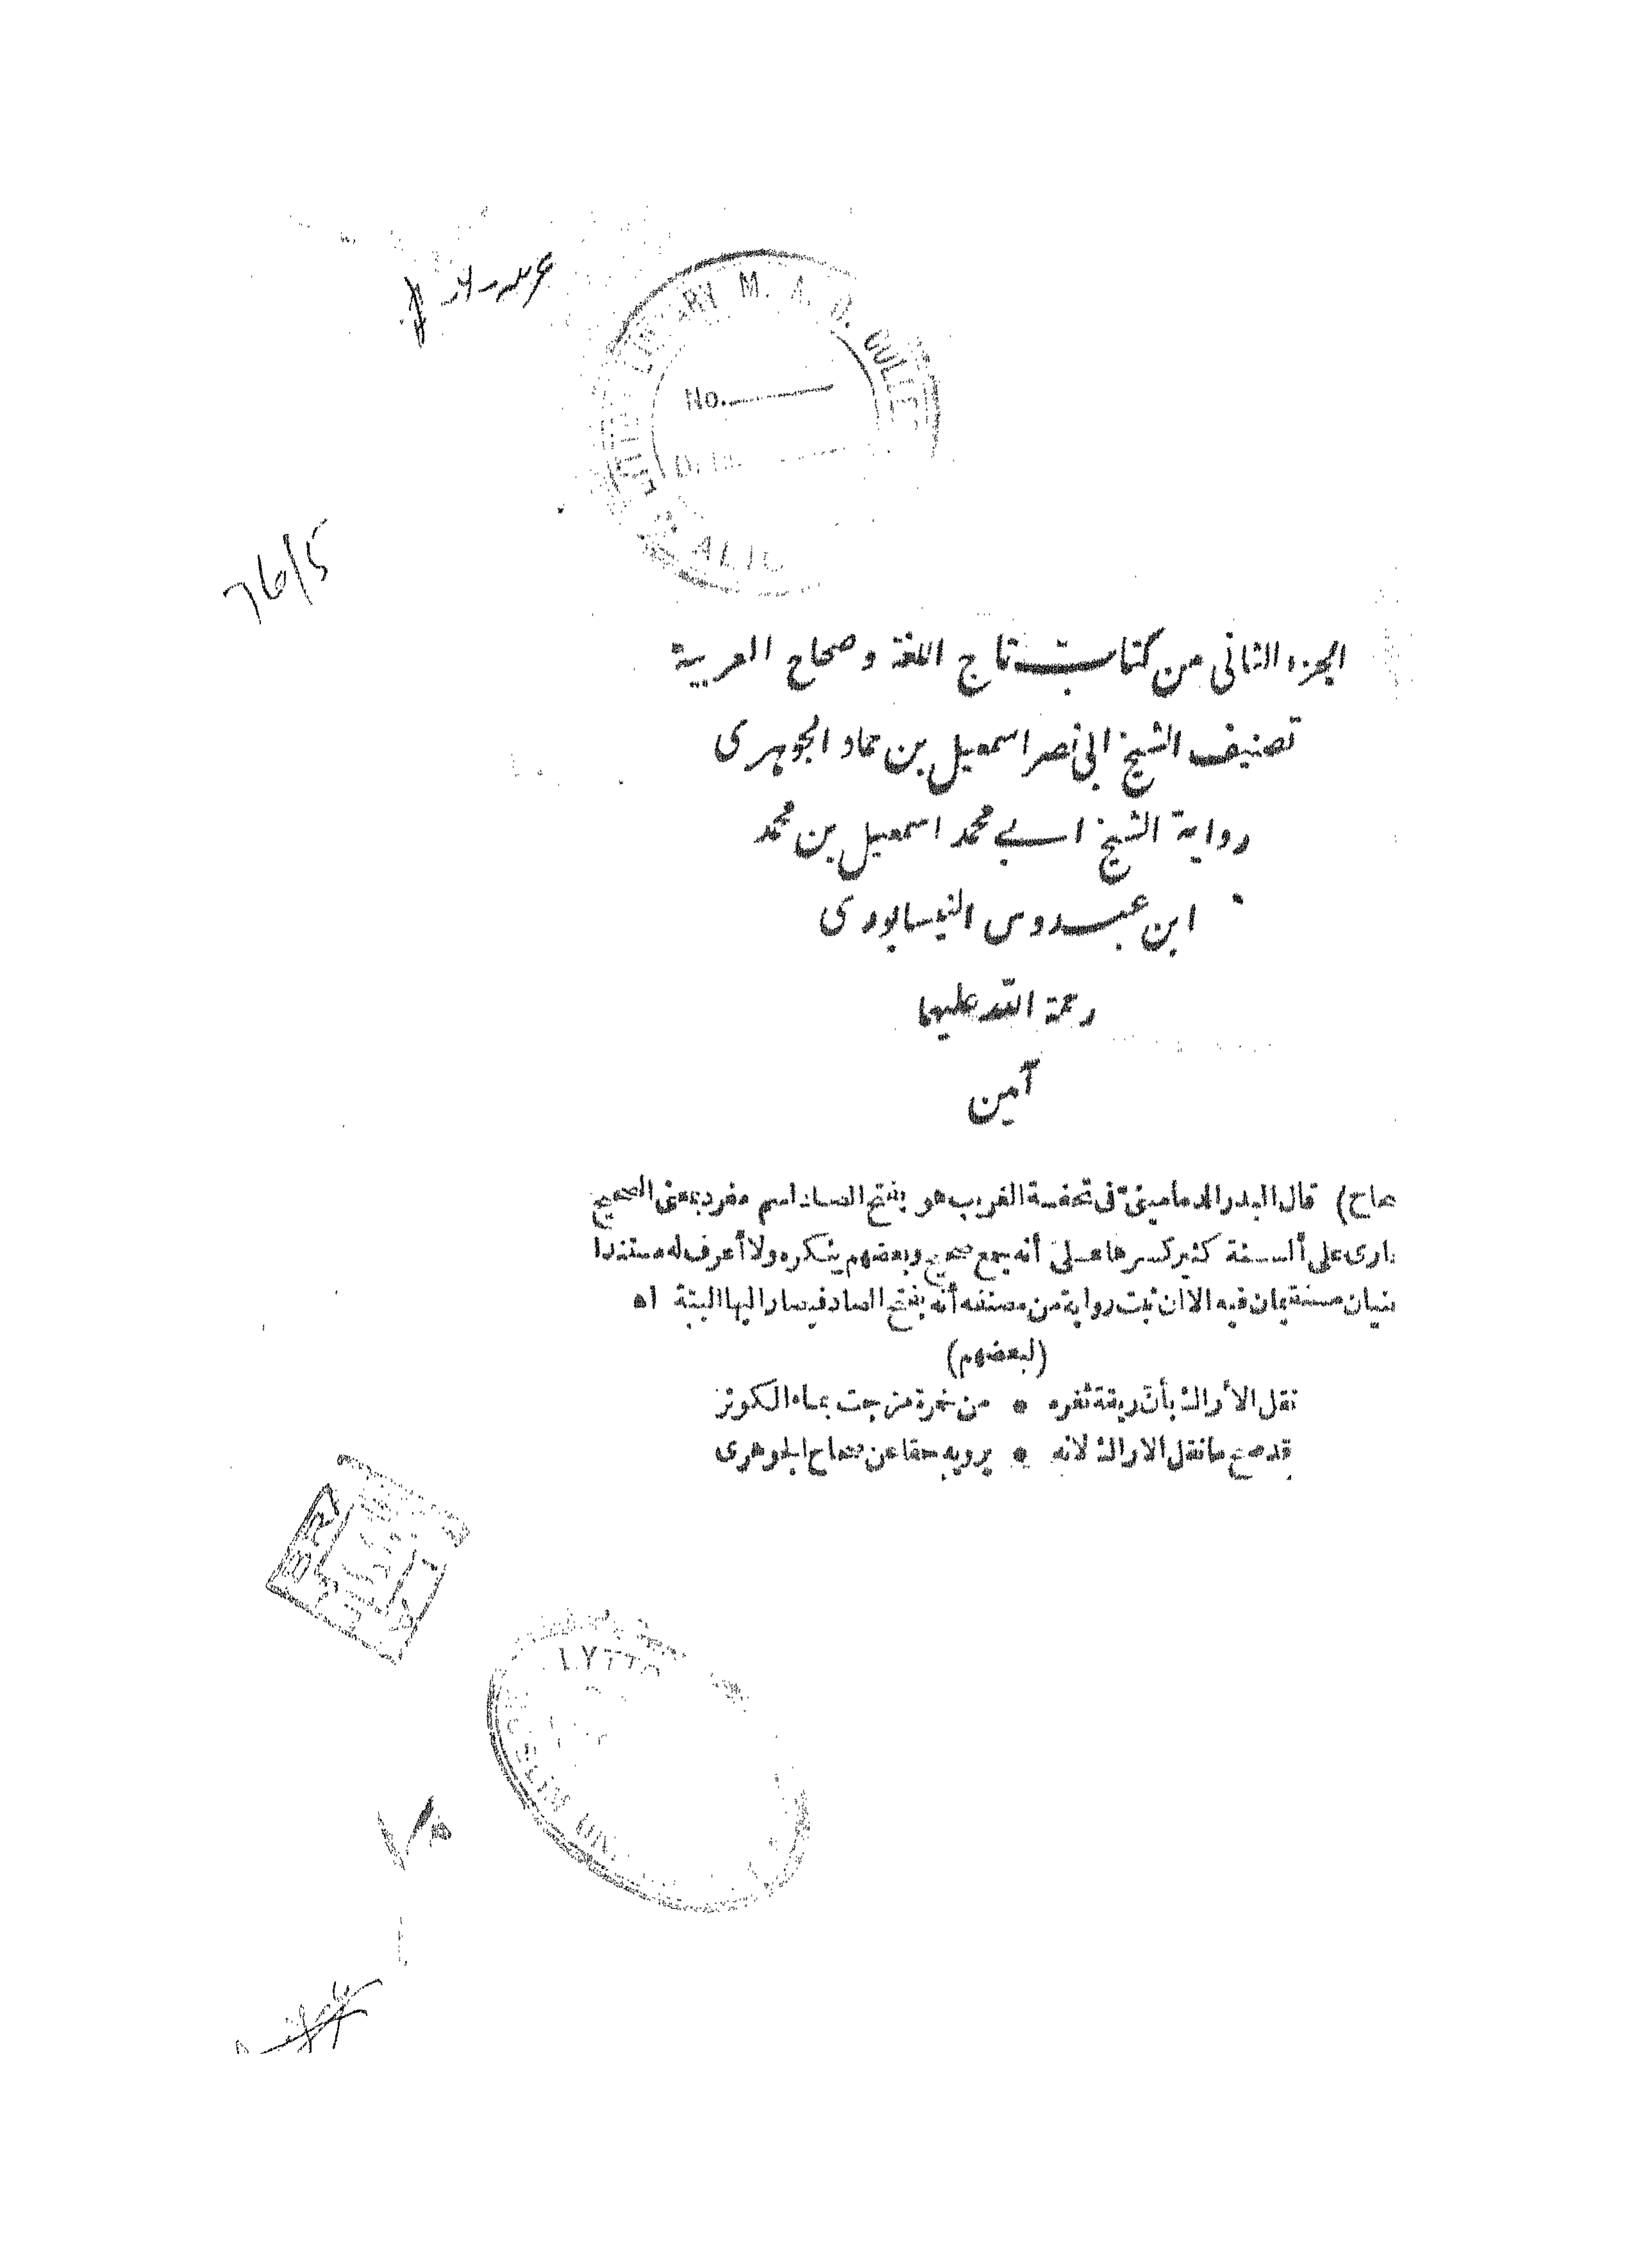 LIBRARY M. A. O. COLLE
No.
ALIG
76/5
الجزء الثانى من كتاب تاج اللغة وصحاح العربية
تصنيف الشيخ ابى نصر اسمعيل بن حماد الجوهرى
رواية الشيخ ابى محمد اسمعيل بن محمد
ابن عبدوس النيسابورى
رحمة الله عليهما
آمين
حاح) قال البدر الدمامينى فى تحفة الغريب هو بفتح الصاد اسم مفرد بمعنى الصحيح
ارى على ألسنة كثير كسرها على أنه جمع صحيح وبعضهم ينكره ولا أعرف له مستندا
نيان مستقيمان فيه الا أن ثبت رواية من مصنفه أنه بفتح الصاد فيصار اليها البتة اه
(لبعضهم)
نقل الأراك بأن ريقة ثغره * من خمرة مزجت بماء الكوثر
قد صح ما نقل الاراك لانه * يرويه حقا عن صحاح الجوهرى
LYTTO